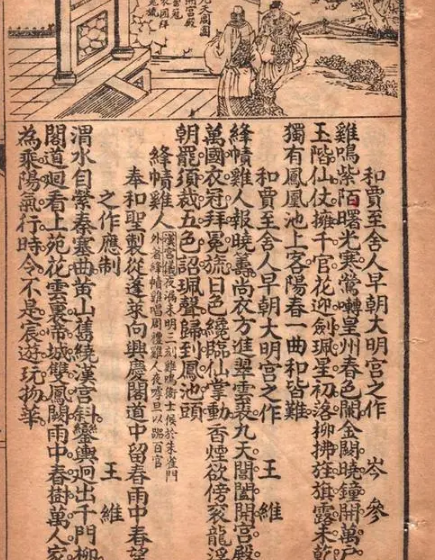 和賈至舍人早朝大明宮之作 岑參
雞鳴紫陌曙光寒鶯囀皇州春色闌金闕曉鐘開萬戶
玉階仙仗擁千官花迎劍珮星初落柳拂旌旗露未乾
獨有鳳凰池上客陽春一曲和皆難
和賈至舍人早朝大明宮之作 王維
絳幘雞人報曉籌尚衣方進翠雲裘九天閶闔開宮殿
萬國衣冠拜冕旒日色纔臨仙掌動香煙欲傍袞龍浮
朝罷須裁五色詔珮聲歸到鳳池頭
絳幘雞人 漢官儀夜漏未明三刻雞鳴衛士候於朱雀門
外著絳幘雞唱周禮雞人夜嘑旦以嘂百官
奉和聖製從蓬萊向興慶閣道中留春雨中春望
之作應制 王維
渭水自縈秦塞曲黃山舊繞漢宮斜鑾輿迥出千門柳
閣道迴看上苑花雲裏帝城雙鳳闕雨中春樹萬人家
為乘陽氣行時令不是宸遊玩物華